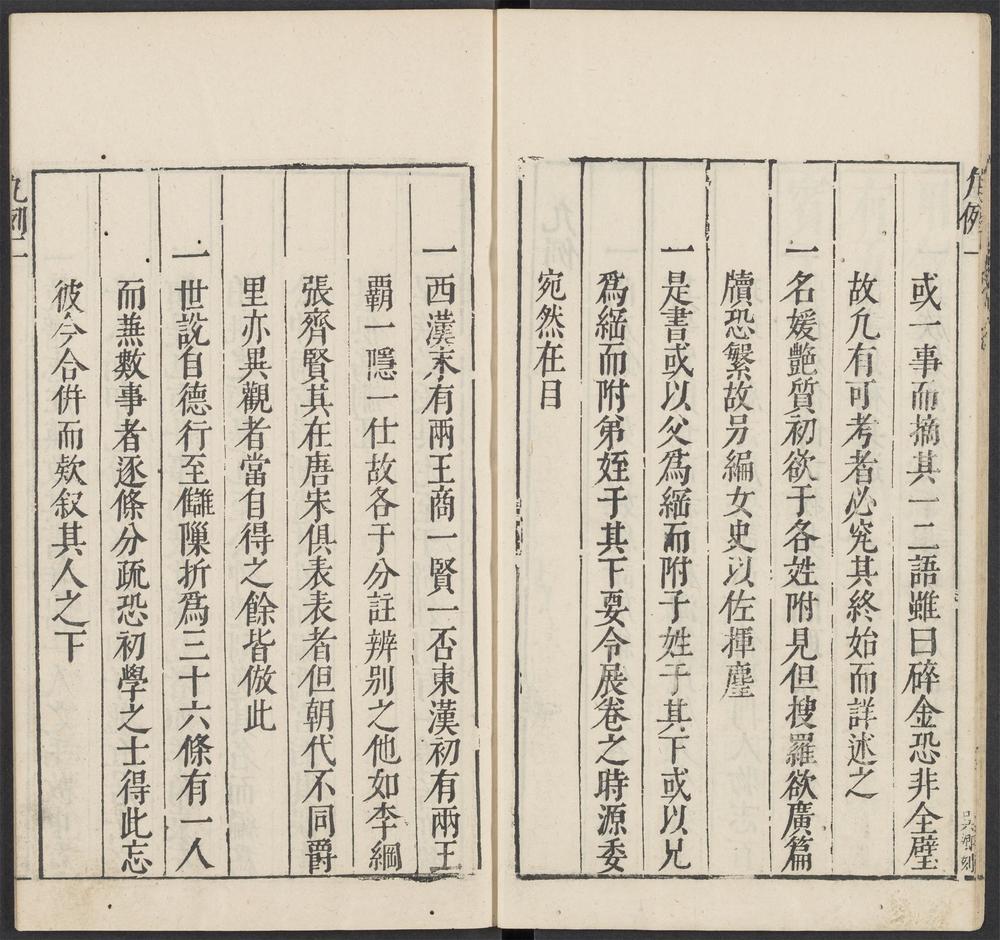 凢例一
或一事而摘其一二語雖曰碎金恐非全璧
故凢有可考者必究其終始而詳述之
一名媛艶質初欲于各姓附見但搜羅欲廣篇
牘恐繁故另編女史以佐揮麈
一是書或以父爲綱而附子姓于其下或以兄
爲綱而附弟姪于其下要令展卷之時源委
宛然在目
吳郡刻
一西漢末有兩王商一賢一否東漢初有兩王
覇一隱一仕故各于分註辨别之他如李綱
張齊賢其在唐宋俱表表者但朝代不同爵
里亦異觀者當自得之餘皆倣此
一世説自德行至讎隟折爲三十六條有一人
而兼數事者逐條分疏恐初學之士得此忘
彼今合併而欵叙其人之下
凢例二